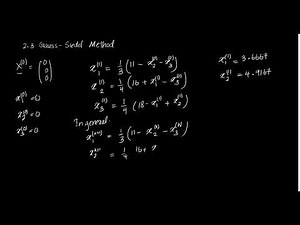 2.3 Gauss-Siedel Method
X^(0) = (0 0 0)
x_1^(0) = 0
x_2^(0) = 0
x_3^(0) = 0
x_1^(1) = 1/3 (11 - x_2^(0) - x_3^(0))
x_2^(1) = 1/4 (16 + x_1^(1) - x_3^(0))
x_3^(1) = 1/4 (18 - x_1^(1) + x_2^(1))
In general:
x_1^(k+1) = 1/3 (11 - x_2^(k) - x_3^(k))
= 1/4 16 + x
x_1^(1) = 3.6667
x_2^(1) = 4.9167